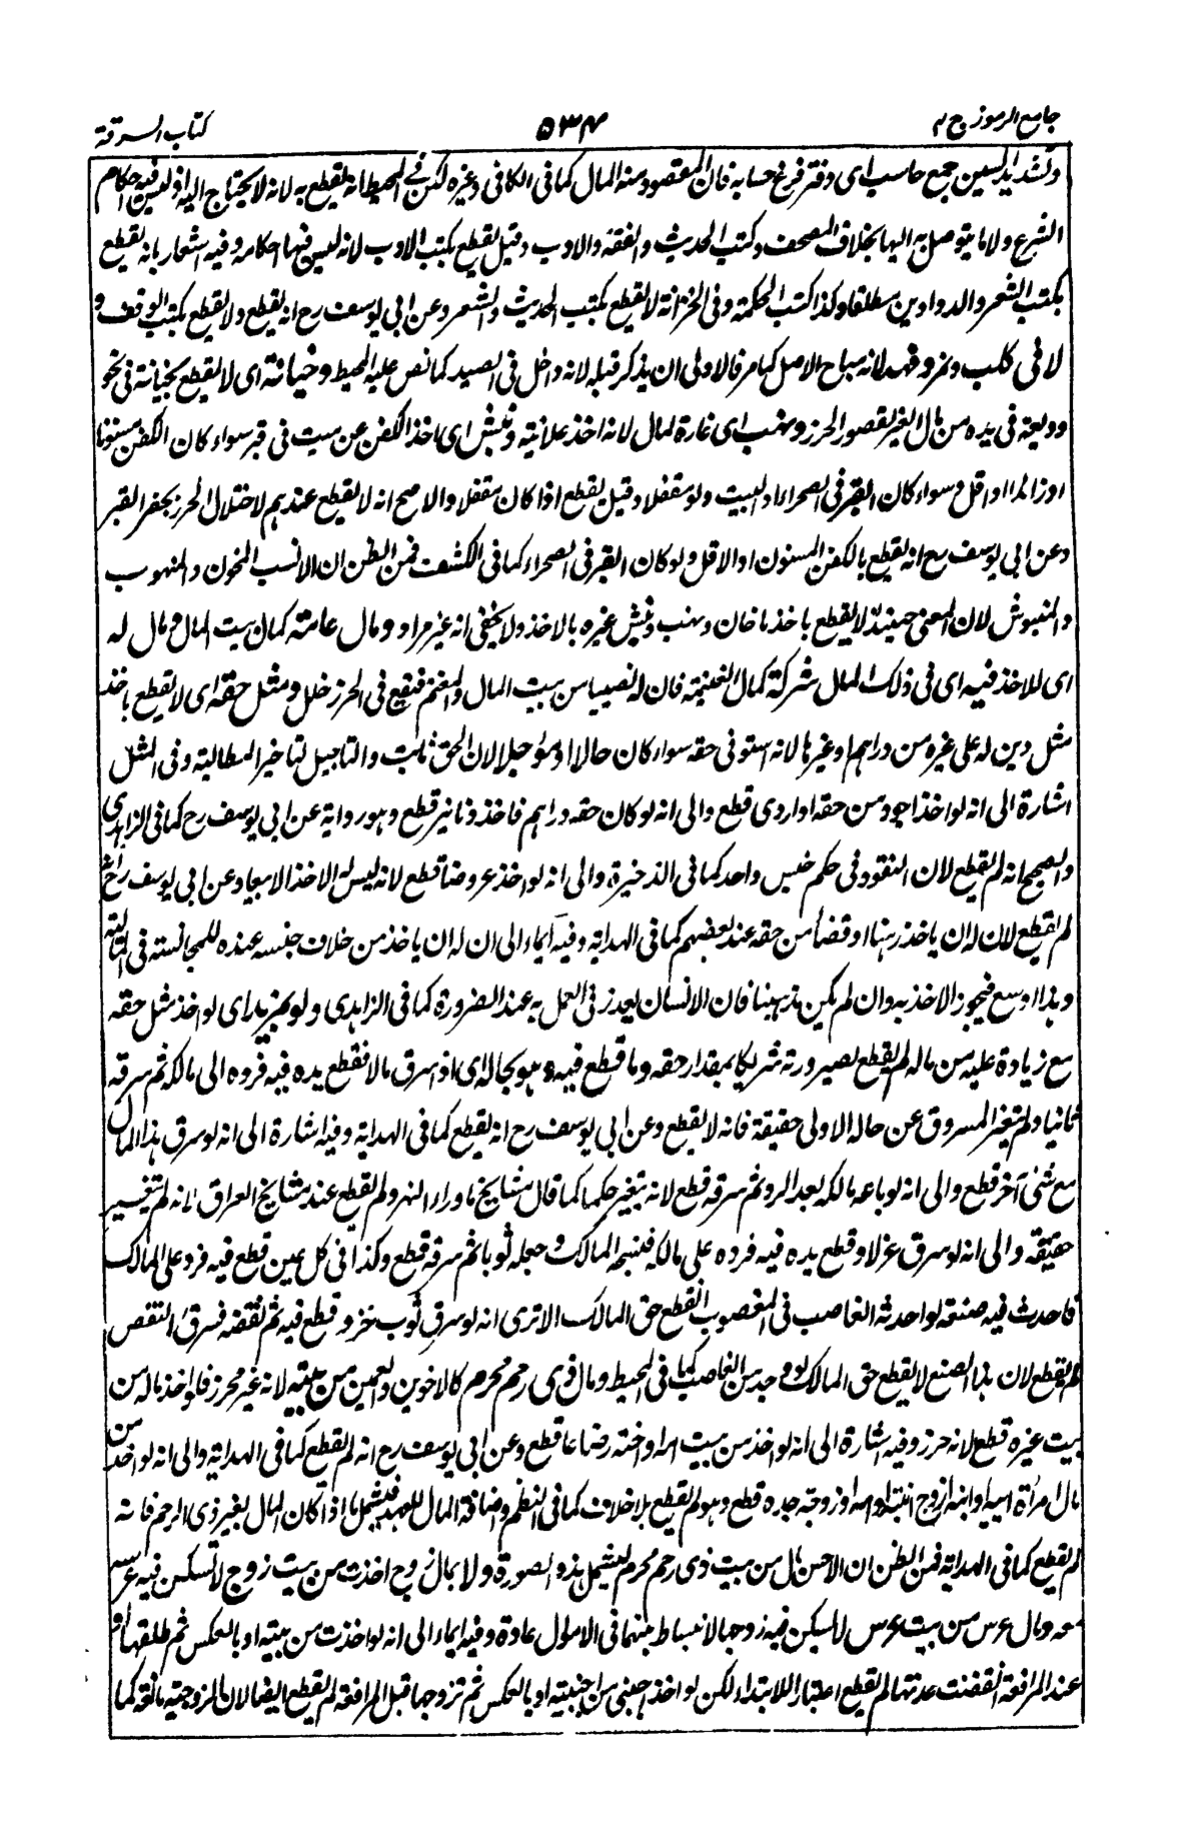 جامع الرموز ج ٢
٥٣٤
كتاب السرقة
وتشديد السين جمع حاسب اى دفتر فرغ حسابه فان المقصود منه المال كما فى الكافى وغيره لكن فى المحيط انه يقطع به لانه لا يحتاج اليه اذ ليس فيه احكام
الشرع ولا ما يتوصل به اليها بخلاف المصحف وكتب الحديث والفقه والادب وقيل يقطع بكتب الادب لانه ليس فيها احكامه وفيه اشعار بانه يقطع
بكتب الشعر والدواوين مطلقا وكذا كتب الحكمة وفى الخزانة لا يقطع بكتب الحديث والشعر وعن ابى يوسف رح انه يقطع ولا يقطع بكتب الوقف و
لا فى كلب ونمر وفهد لانه مباح الاصل كما مر فالاولى ان يذكر قبله لانه داخل فى الصيد كما نص عليه المحيط وخيانة اى لا يقطع بخيانة فى نحو
وديعة فى يده من مال الغير لقصور الحرز ونهب اى غارة لمال لانه اخذ علانية ونبش اى باخذ الكفن عن ميت فى قبر سواء كان الكفن مسنونا
او زائدا او اقل وسواء كان القبر فى الصحراء او البيت ولو مقفلا وقيل يقطع اذا كان مقفلا والاصح انه لا يقطع عندهم لاختلال الحرز بحفر القبر
وعن ابى يوسف رح انه يقطع بالكفن المسنون او الاقل ولو كان القبر فى الصحراء كما فى الكشف فمن الظن ان الانسب المخون والمنهوب
والمنبوش لان المعنى حينئذ لا يقطع باخذ ما خان ونهب ونبش غيره بالاخذ ولا يخفى انه غير مراد ومال عامة كمال بيت المال ومال له
اى للاخذ فيه اى فى ذلك المال شركة كمال الغنيمة فان له نصيبا من بيت المال والمغنم فيقع فى الحرز خلل ومثل حقه اى لا يقطع باخذ
مثل دين له على غيره من دراهم او غيرها لانه استوفى حقه سواء كان حالا او مؤجلا لان الحق ثابت والتاجيل لتاخير المطالبة وفى المثل
اشارة الى انه لو اخذ اجود من حقه او اردى قطع والى انه لو كان حقه دراهم فاخذ دنانير قطع وهو رواية عن ابى يوسف رح كما فى الزاهدى
والصحيح انه لم يقطع لان النقود فى حكم جنس واحد كما فى الذخيرة والى انه لو اخذ عروضا قطع لانه ليس له الاخذ الا بيعا وعن ابى يوسف رح انه
لم يقطع لان له ان ياخذ رهنا او قضاء من حقه عند بعضهم كما فى الهداية وفيه ايماء الى ان له ان ياخذ من خلاف جنسه عنده للمجانسة فى المالية
وهذا اوسع فيجوز الاخذ به وان لم يكن مذهبنا فان الانسان يعذر فى العمل به عند الضرورة كما فى الزاهدى ولو بمزيد اى لو اخذ مثل حقه
مع زيادة عليه من ماله لم يقطع لصيرورته شريكا بمقدار حقه وما قطع فيه وهو بحاله اى اذا سرق مالا فقطع يده فيه فرده الى مالكه ثم سرقه
ثانيا ولم يتغير المسروق عن حاله الاولى حقيقة فانه لا يقطع وعن ابى يوسف رح انه يقطع كما فى الهداية وفيه اشارة الى انه لو سرق هذا المال
مع شئ آخر قطع والى انه لو باعه مالكه بعد الرد ثم سرقه قطع لانه بتغير حكما كما قال مشايخ ماوراء النهر ولم يقطع عند مشايخ العراق لانه لم يتغير
حقيقة والى انه لو سرق غزلا وقطع يده فيه فرده على مالكه فنسجه المالك وجعله ثوبا ثم سرقه قطع وكذا فى كل عين قطع فيه فرد على المالك
فاحدث فيه صنعة لو احدثه الغاصب فى المغصوب انقطع حق المالك الا ترى انه لو سرق ثوب خز وقطع فيه ثم نقضه فسرق النقض
لم يقطع لان هذا الصنع لا يقطع حق المالك لو وجد من الغاصب كما فى المحيط ومال ذى رحم محرم كالاخوين والعمين من بيته لانه غير محرز فلو اخذ ماله من
بيت غيره قطع لانه حرز وفيه اشارة الى انه لو اخذ من بيت امه او اخته رضاعا قطع وعن ابى يوسف رح انه لم يقطع كما فى الهداية والى انه لو اخذ من
مال امرأة ابيه او ابنه او زوج ابنته او امه او زوجة جده قطع وهو لم يقطع بلا خلاف كما فى النظم واضافة المال للعهد فيشمل ما اذا كان المال لغير ذى الرحم فانه
لم يقطع كما فى الهداية فمن الظن ان الاحسن مال من بيت ذى رحم محرم ليشمل هذه الصورة ولا بمال زوج اخذت من بيت زوج لا تسكن فيه عرسه
معه ومال عرس من بيت عرس لا يسكن فيه زوجها لانبساط بينهما فى الاموال عادة وفيه ايماء الى انه لو اخذت من بيته او بالعكس ثم طلقها
عند المرافعة انقضت عدتها لم يقطع اعتبارا للابتداء لكن لو اخذ اجنبى من اجنبية او بالعكس ثم تزوجها قبل المرافعة لم يقطع ايضا لان الزوجية مانعة كما